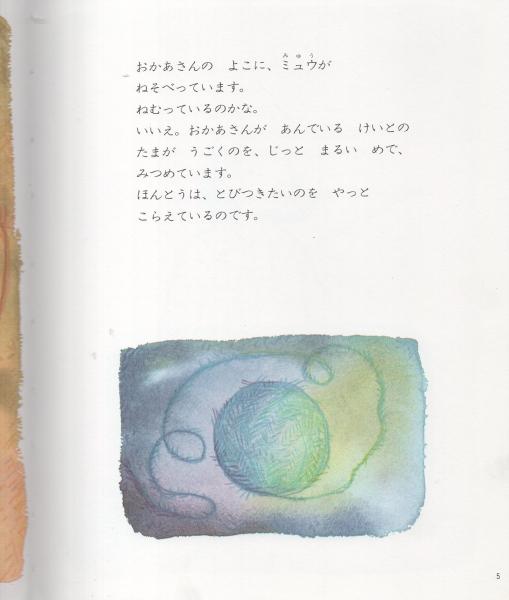 おかあさんの　よこに、ミュウが
ねそべっています。
ねむっているのかな。
いいえ。おかあさんが　あんでいる　けいとの
たまが　うごくのを、じっと　まるい　めで、
みつめています。
ほんとうは、とびつきたいのを　やっと
こらえているのです。
5